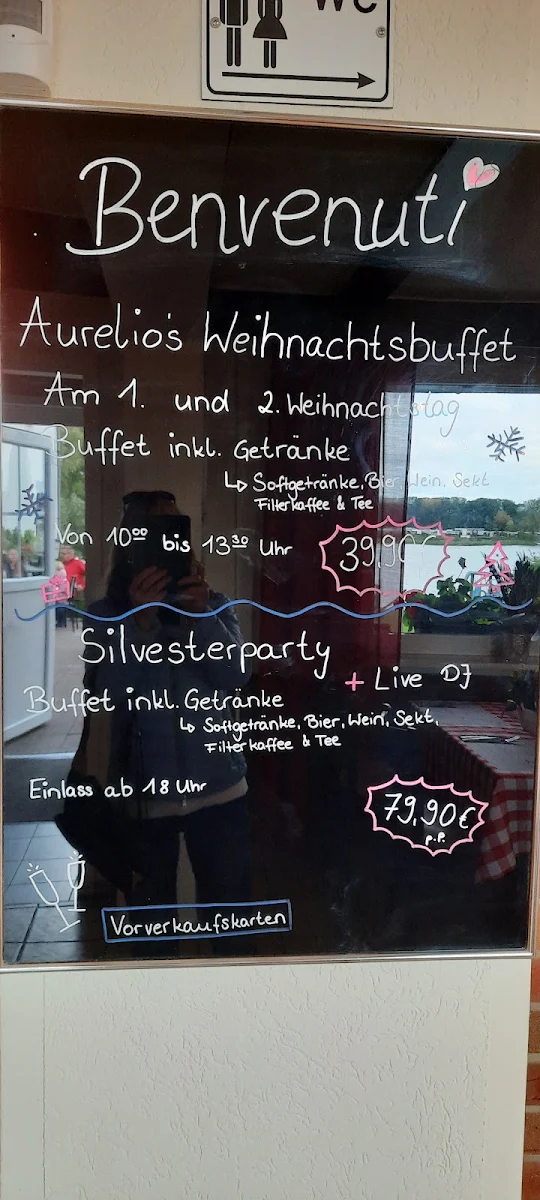 WC
Benvenuti
Aurelio's Weihnachtsbuffet
Am 1. und 2. Weihnachtstag
Buffet inkl. Getränke
↳ Softgetränke, Bier, Wein, Sekt
Filterkaffee & Tee
Von 10⁰⁰ bis 13³⁰ Uhr
39,90€
Silvesterparty
+ Live DJ
Buffet inkl. Getränke
↳ Softgetränke, Bier, Wein, Sekt,
Filterkaffee & Tee
Einlass ab 18 Uhr
79,90€
p.P.
Vorverkaufskarten